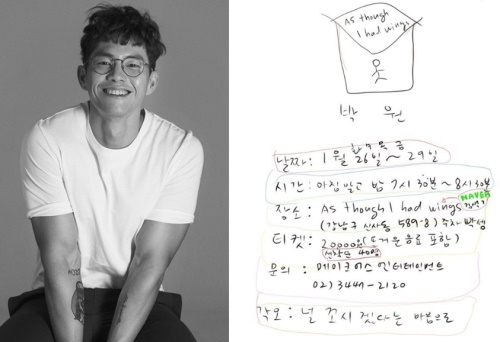 As though
I had wings
박 원
화 수 목 금
날짜 : 1월 26일 ~ 29일
시간 : 아침 말고 밤 7시 30분 ~ 8시 30분
NAVER
장소 : As though I had wings
(강남구 신사동 589-8) 주차 빡셈
티켓 : 20000원 (뜨거운 음료 포함)
선착순 40명
문의 : 메이크어스 엔터테인먼트
02) 3447-2120
각오 : 널 꼬시겠다는 마음으로